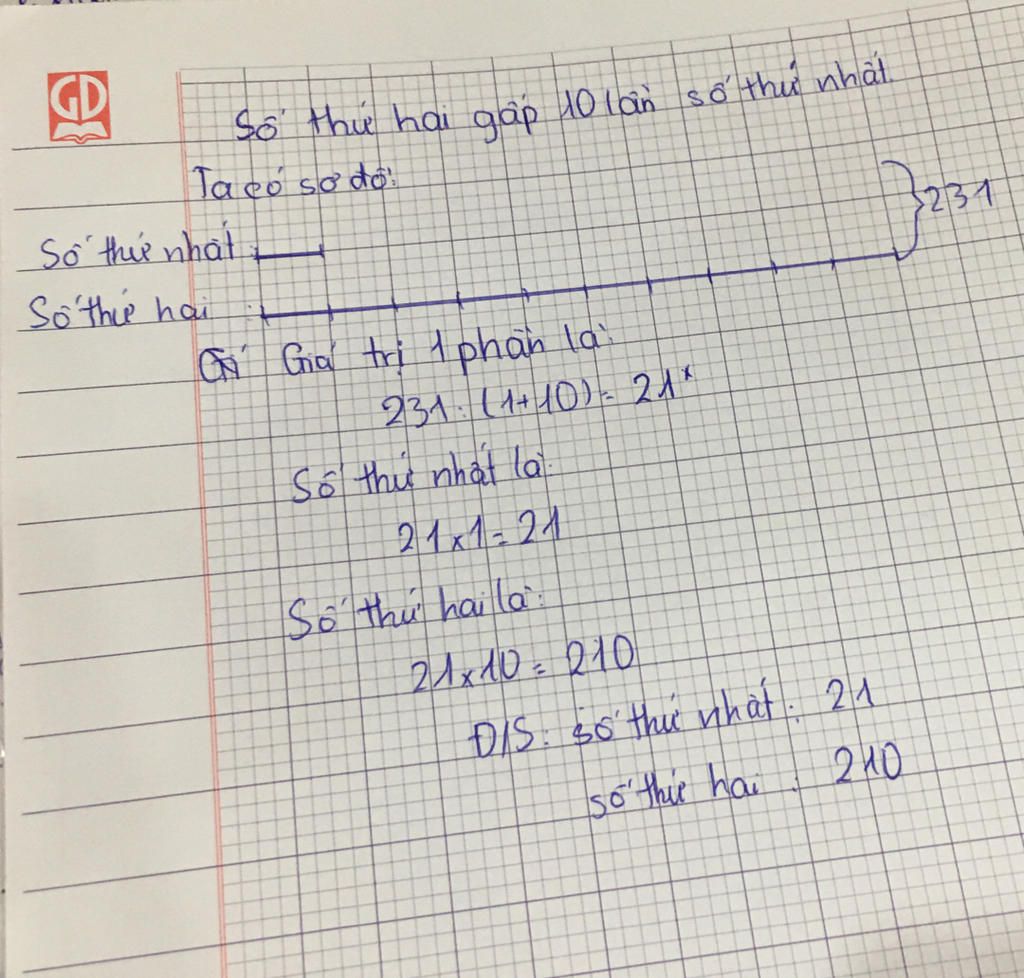 GD
Số thứ hai gấp 10 lần số thứ nhất
Ta có sơ đồ:
231
Số thứ nhất:
Số thứ hai :
Giá trị 1 phần là:
231 : (1+10) = 21
Số thứ nhất là:
21 x 1 = 21
Số thứ hai là:
21 x 10 = 210
Đ/S: số thứ nhất: 21
số thứ hai : 210